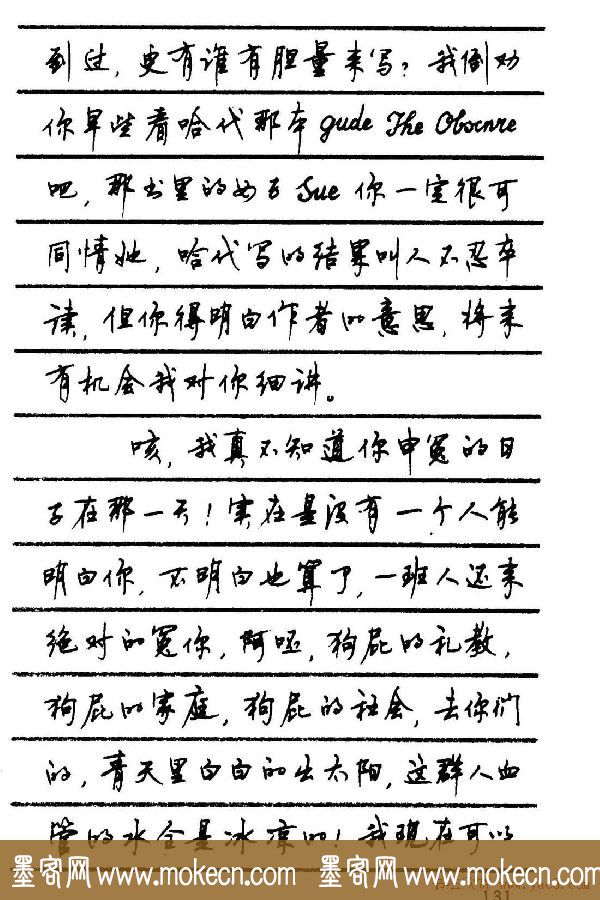 到过，更有谁有胆量来写？我倒劝
你早些看哈代那本 gude The Obscnre
吧，那书里的女子Sue 你一定很可
同情她，哈代写的结果叫人不忍卒
读，但你得明白作者的意思，将来
有机会我对你细讲。
咳，我真不知道你申冤的日
子在那一天！实在是没有一个人能
明白你，不明白也算了，一班人还来
绝对的冤你，阿呸，狗屁的礼教，
狗屁的家庭，狗屁的社会，去你们
的，青天里白白的出太阳，这群人血
管的水全是冰凉的！我现在可以
墨客网 www.mokecn.com 墨客网 www.mokecn.com
131